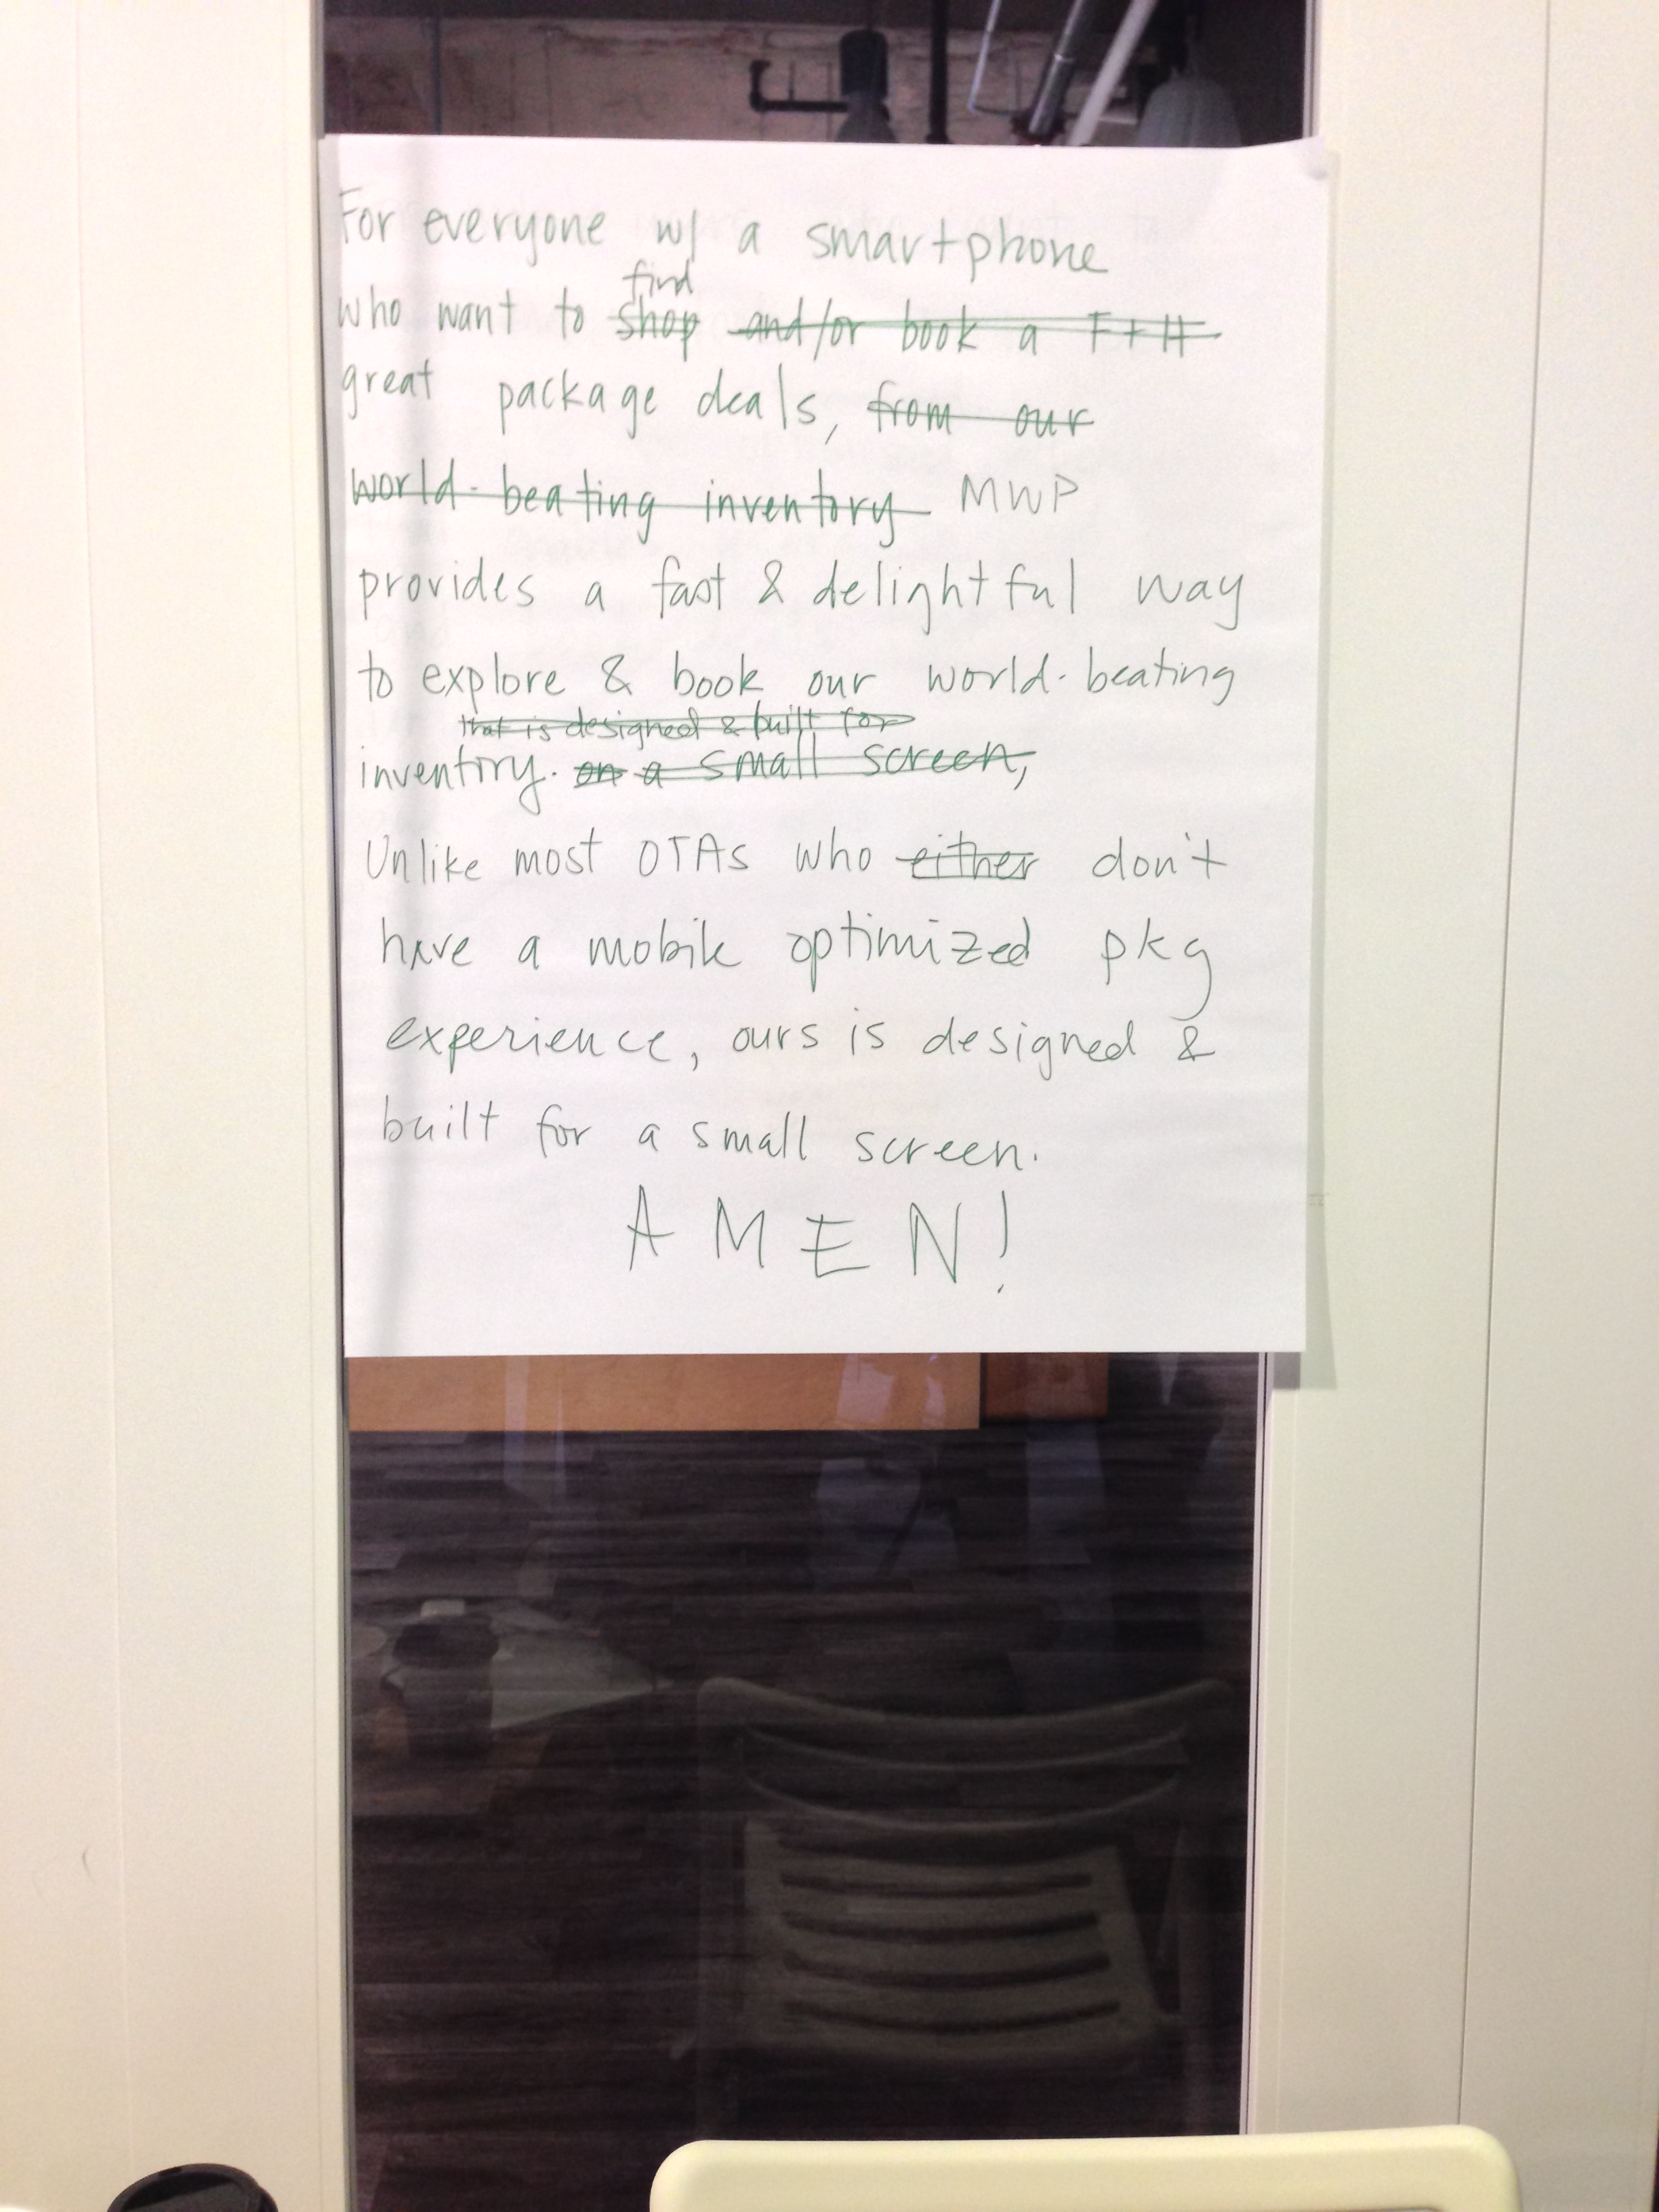 For everyone w/ a smartphone
find
who want to shop and/or book a F+H
great package deals, from our
world-beating inventory MWP
provides a fast & delightful way
to explore & book our world-beating
that is designed & built for
inventory. on a small screen,
Unlike most OTAs who either don't
have a mobile optimized pkg
experience, ours is designed &
built for a small screen.
AMEN!